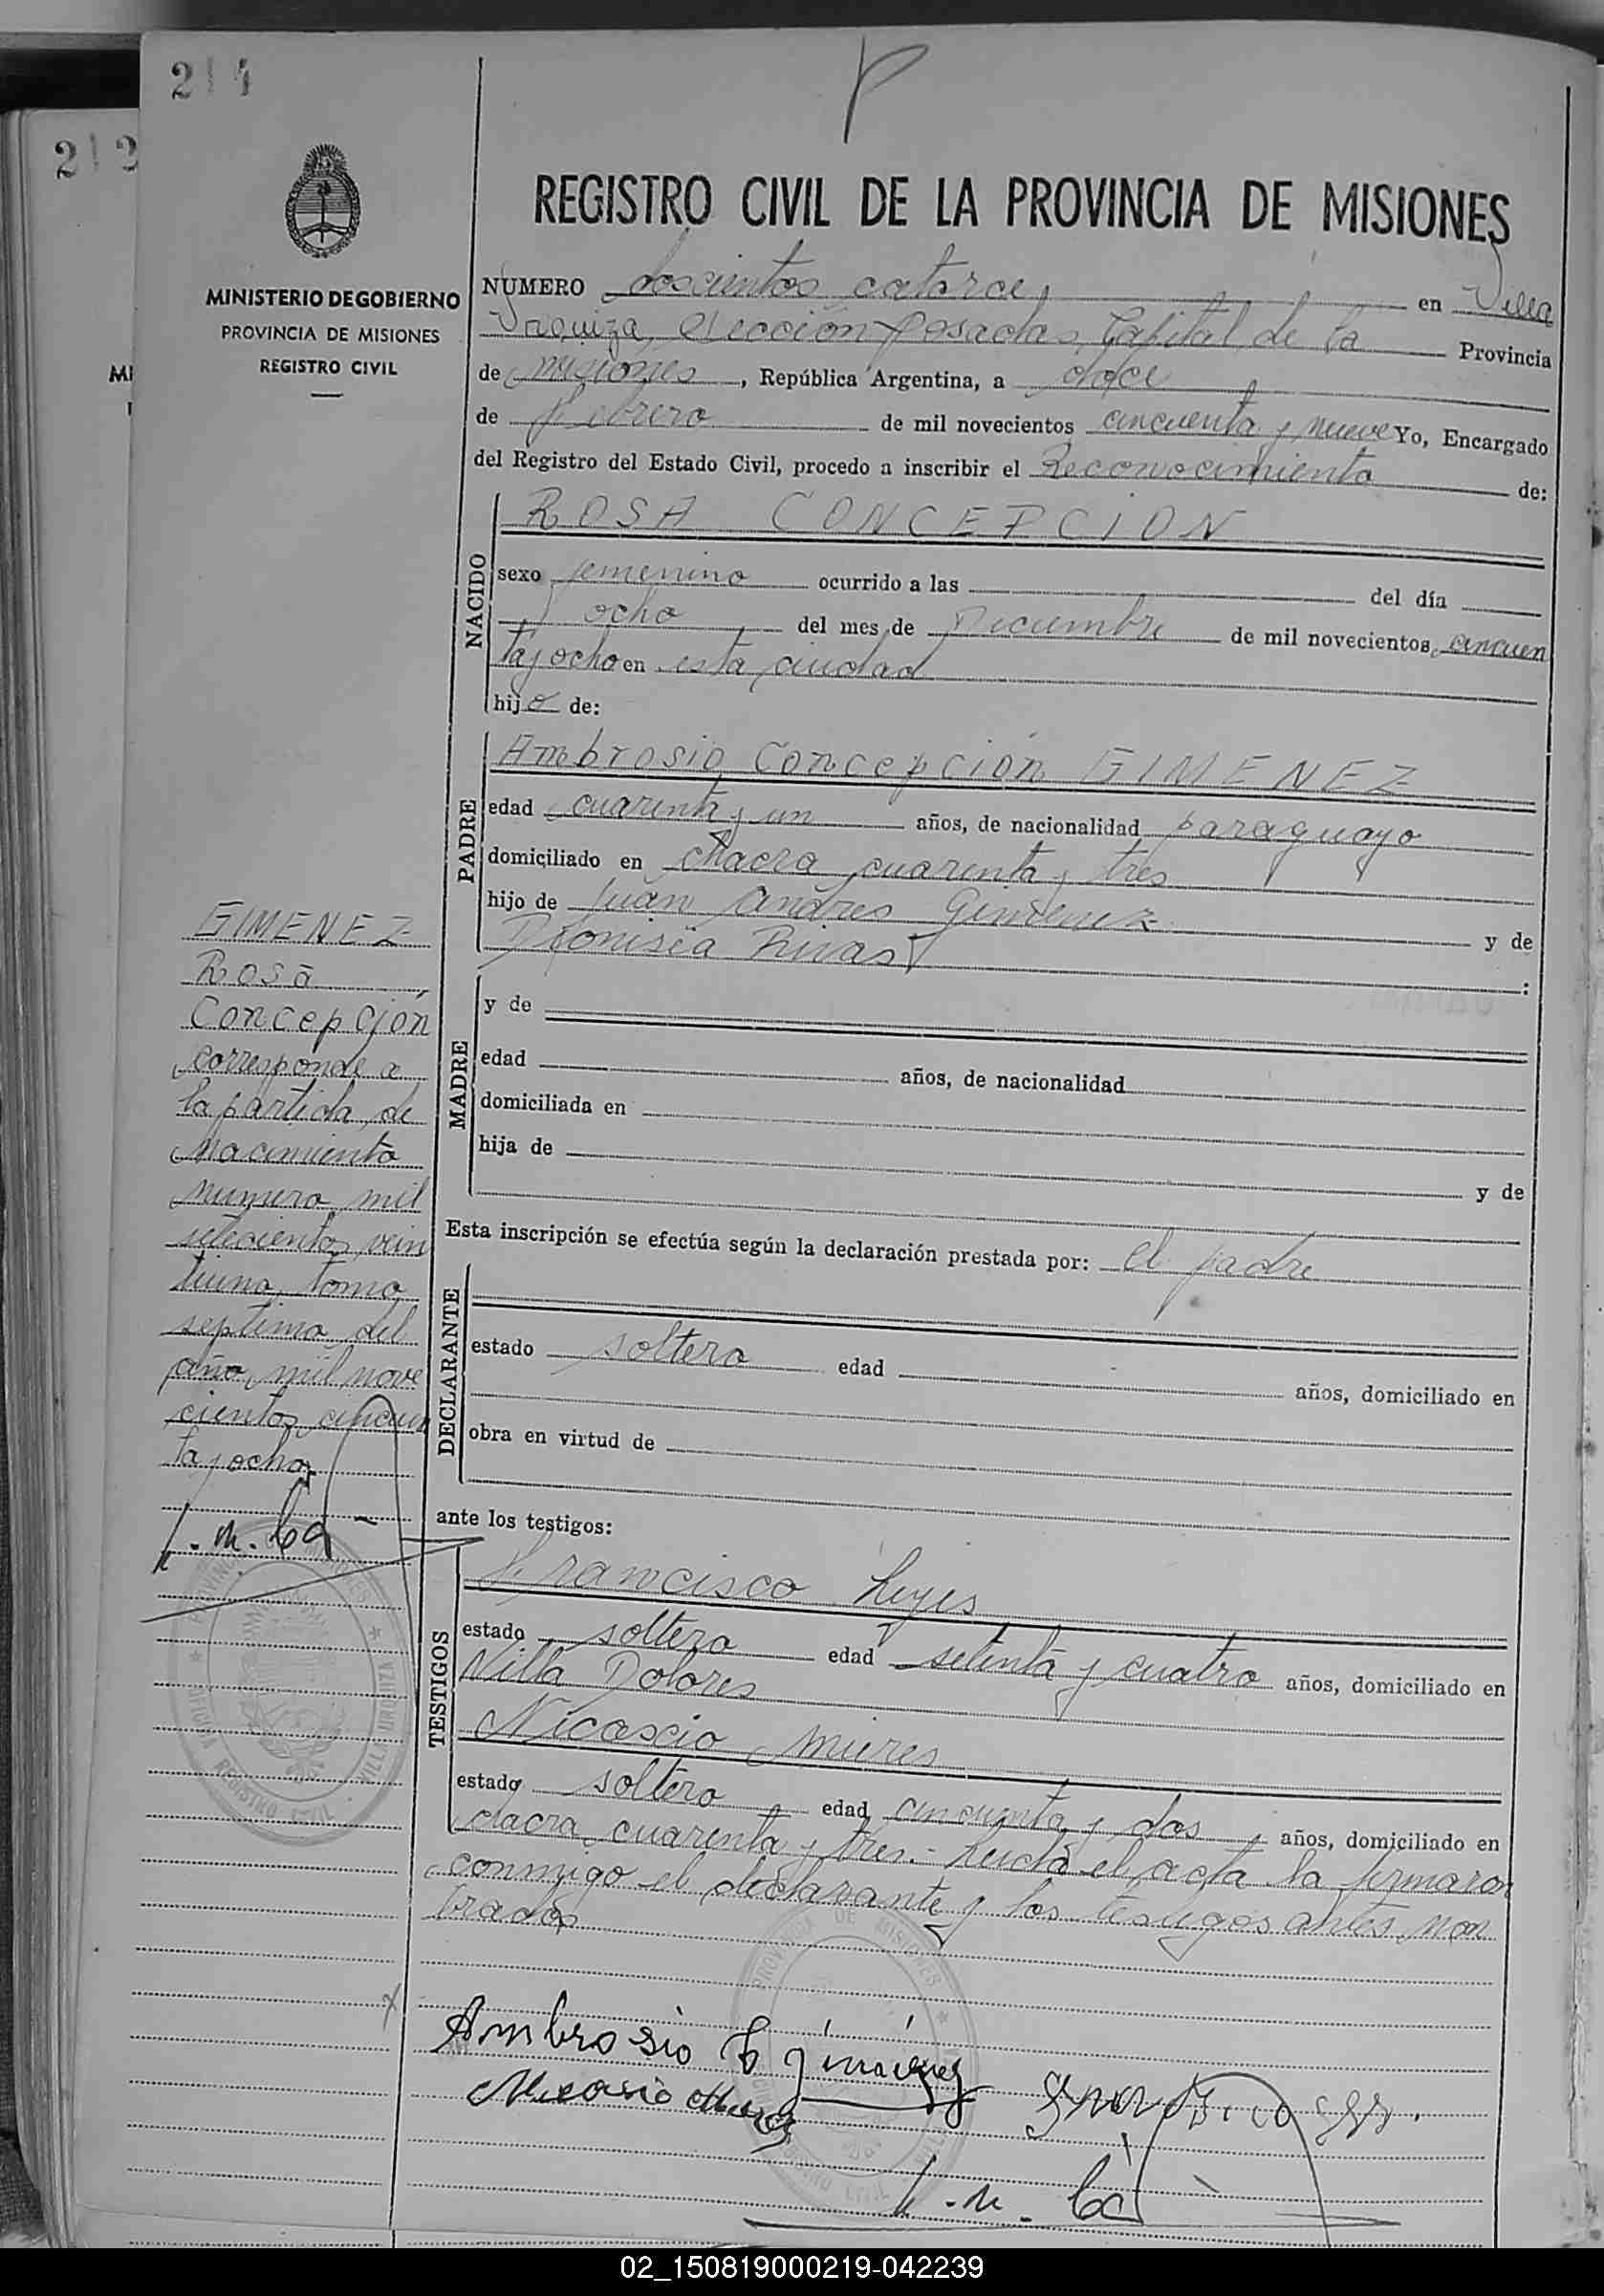 214
212
MINISTERIO DE GOBIERNO
PROVINCIA DE MISIONES
REGISTRO CIVIL
REGISTRO CIVIL DE LA PROVINCIA DE MISIONES
NUMERO doscientos catorce, en Villa
Urquiza, Sección Posadas, Capital de la Provincia
de Misiones, República Argentina, a doce
de Febrero de mil novecientos cincuenta y nueve Yo, Encargado
del Registro del Estado Civil, procedo a inscribir el Reconocimiento de:
NACIDO
ROSA CONCEPCION
sexo femenino ocurrido a las del día
ocho del mes de Diciembre de mil novecientos cincuen
ta y ocho en esta ciudad
hija de:
PADRE
Ambrosio Concepción GIMENEZ
edad cuarenta y un años, de nacionalidad paraguayo
domiciliado en chacra cuarenta y tres
hijo de Juan Andres Gimenez y de
Dionisia Rivas :
MADRE
y de
edad años, de nacionalidad
domiciliada en
hija de
y de
Esta inscripción se efectúa según la declaración prestada por: el padre
DECLARANTE
estado soltero edad años, domiciliado en
obra en virtud de
ante los testigos:
TESTIGOS
Francisco Reyes
estado soltero edad setenta y cuatro años, domiciliado en
Villa Dolores
Nicascio Mieres
estado soltero edad cincuenta y dos años, domiciliado en
chacra cuarenta y tres.- Leida el acta la firmaron
conmigo el declarante y los testigos antes nom
brados
GIMENEZ
Rosa
Concepción
corresponde a
la partida de
nacimiento
numero mil
setecientos vein
tiuno, tomo
septimo del
año mil nove
cientos cincuen
ta y ocho
Ambrosio C Gimenez
02_150819000219-042239